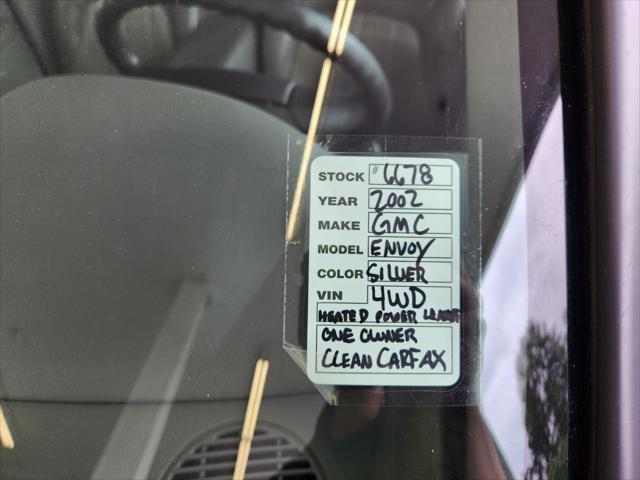 STOCK #6678
YEAR 2002
MAKE GMC
MODEL ENVOY
COLOR SILVER
VIN 4WD
HEATED POWER LEATHER
ONE OWNER
CLEAN CARFAX